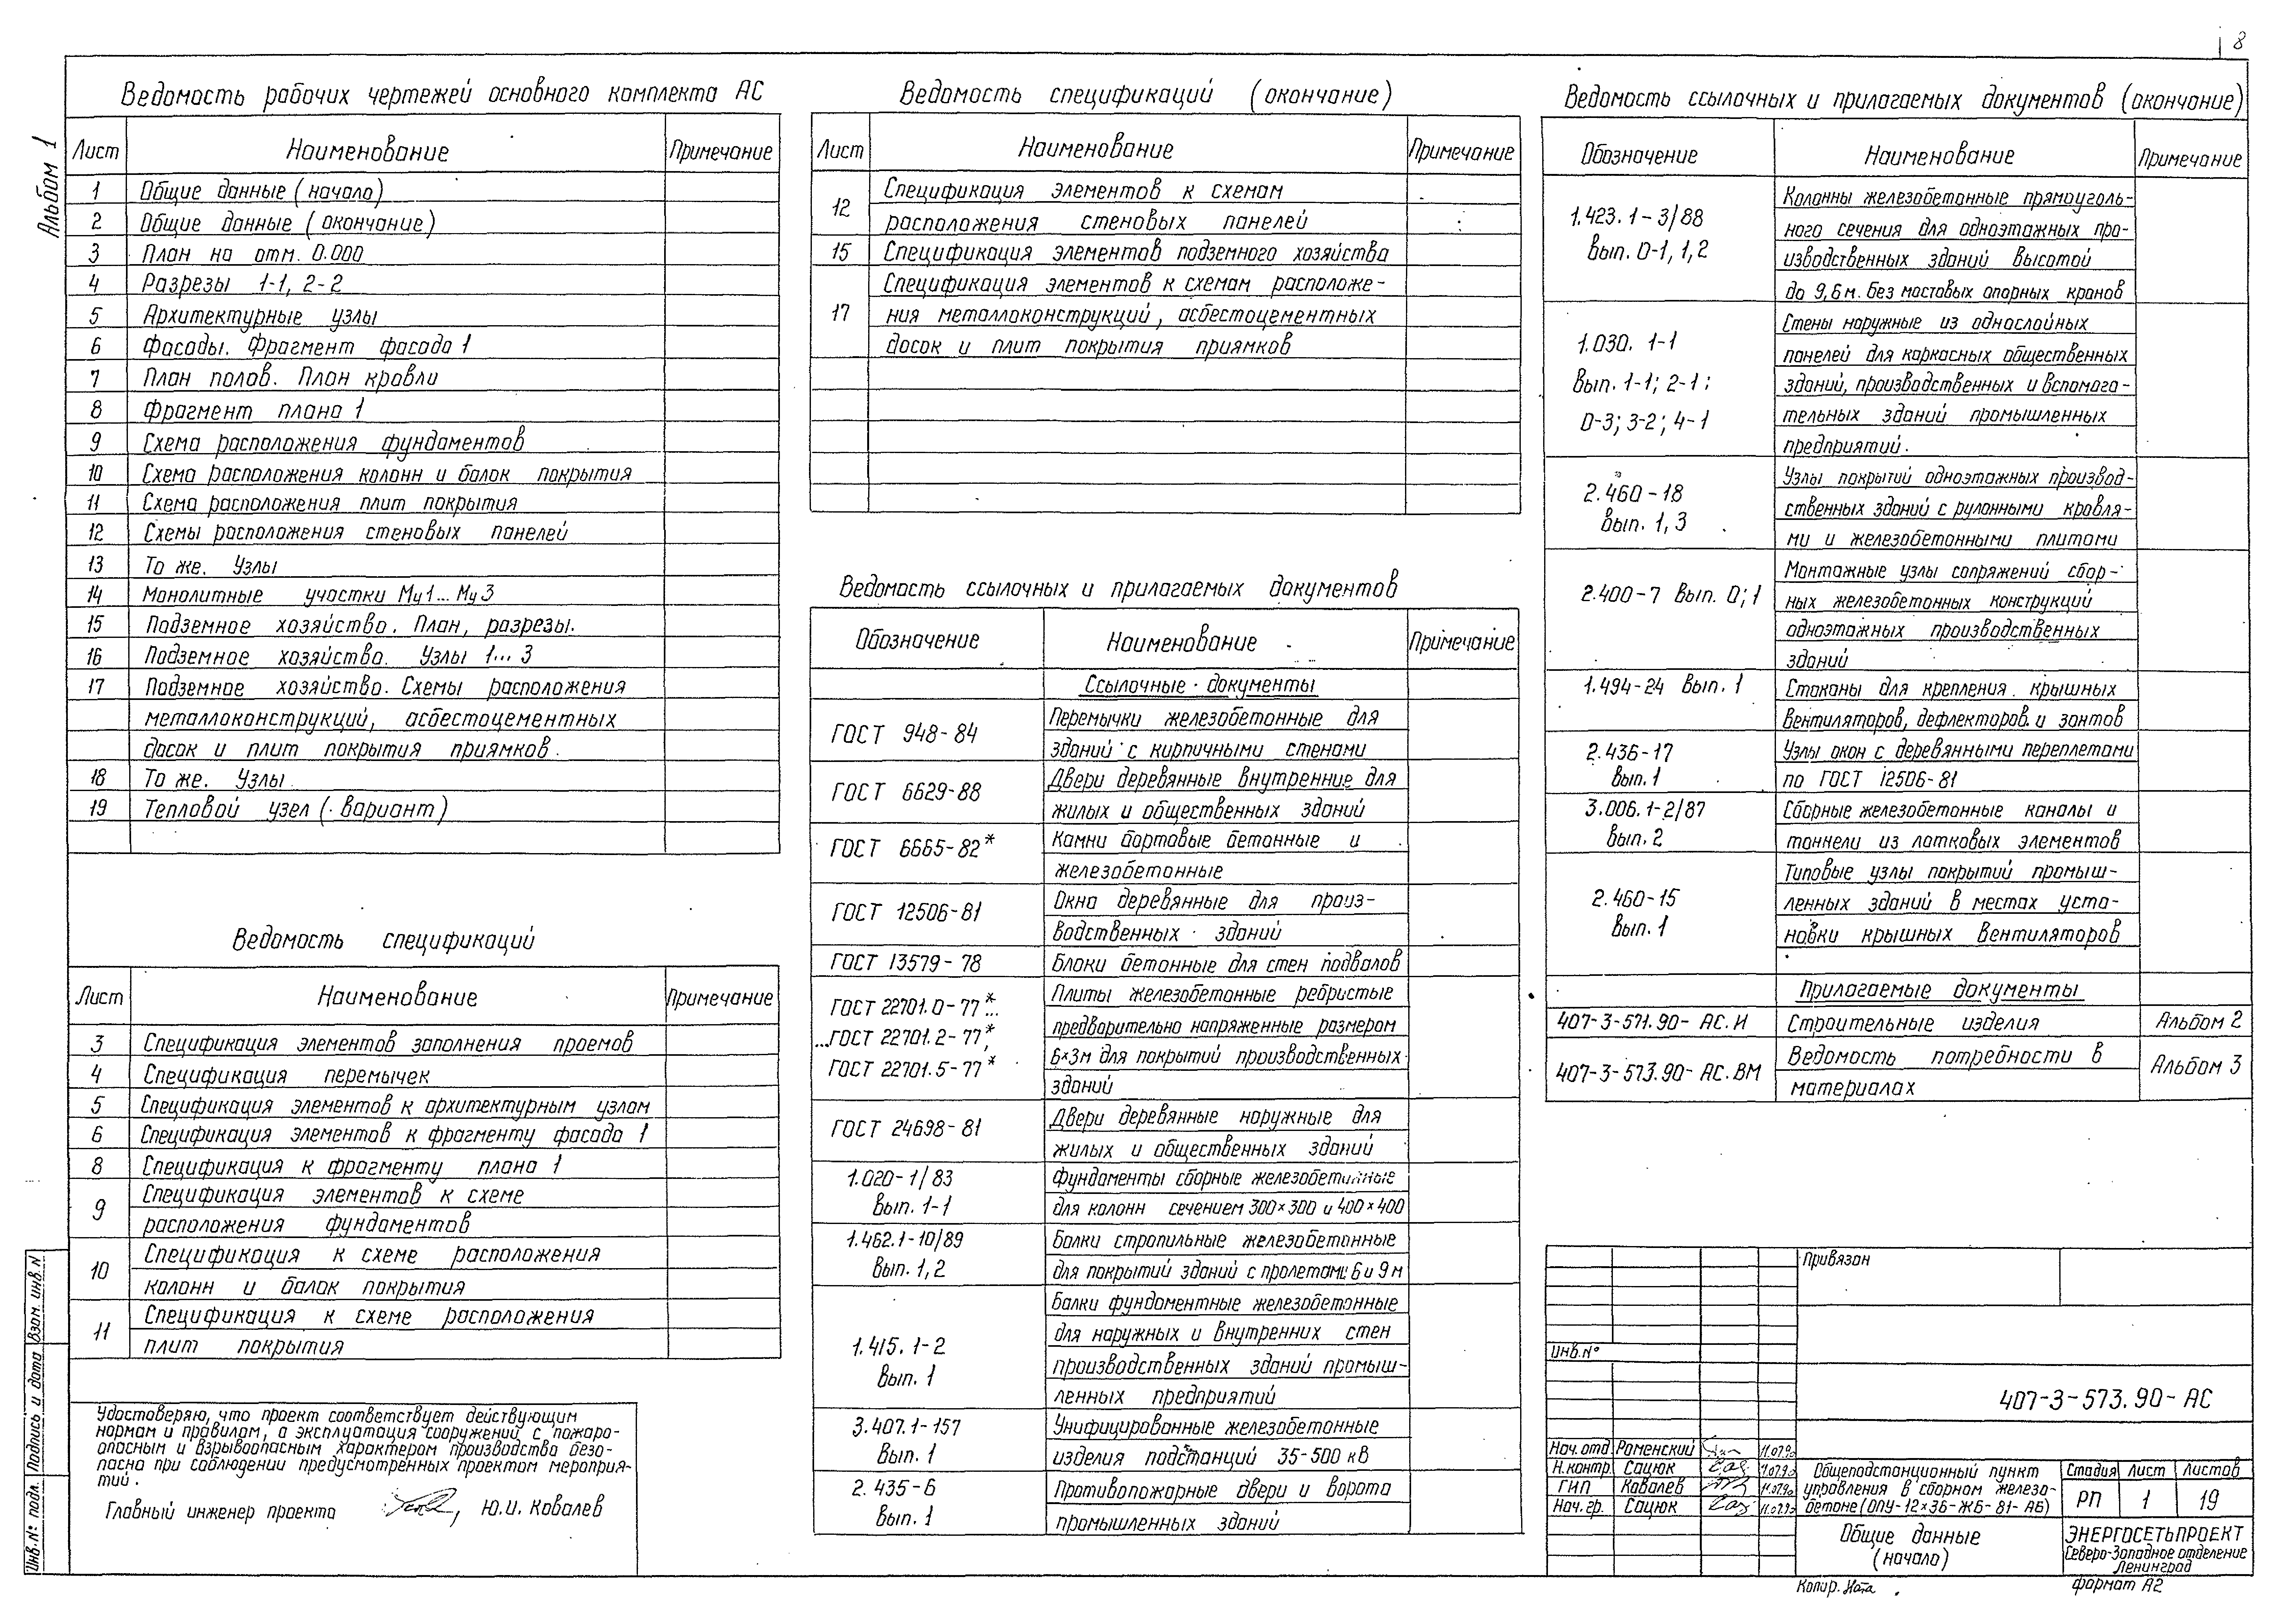 8
Альбом 1
Ведомость рабочих чертежей основного комплекта АС
Лист Наименование Примечание
1 Общие данные (начало)
2 Общие данные (окончание)
3 План на отм. 0.000
4 Разрезы 1-1, 2-2
5 Архитектурные узлы
6 Фасады. Фрагмент фасада 1
7 План полов. План кровли
8 Фрагмент плана 1
9 Схема расположения фундаментов
10 Схема расположения колонн и балок покрытия
11 Схема расположения плит покрытия
12 Схемы расположения стеновых панелей
13 То же. Узлы
14 Монолитные участки Му1... Му3
15 Подземное хозяйство. План, разрезы.
16 Подземное хозяйство. Узлы 1... 3
17 Подземное хозяйство. Схемы расположения
металлоконструкций, асбестоцементных
досок и плит покрытия приямков.
18 То же. Узлы
19 Тепловой узел (вариант)
Ведомость спецификаций
Лист Наименование Примечание
3 Спецификация элементов заполнения проемов
4 Спецификация перемычек
5 Спецификация элементов к архитектурным узлам
6 Спецификация элементов к фрагменту фасада 1
8 Спецификация к фрагменту плана 1
9 Спецификация элементов к схеме
расположения фундаментов
10 Спецификация к схеме расположения
колонн и балок покрытия
11 Спецификация к схеме расположения
плит покрытия
Удостоверяю, что проект соответствует действующим
нормам и правилам, а эксплуатация сооружений с пожаро-
опасным и взрывоопасным характером производства безо-
пасна при соблюдении предусмотренных проектом мероприя-
тий.
Главный инженер проекта Ю.И. Ковалев
Инв. № подл. Подпись и дата Взам. инв. N
Ведомость спецификаций (окончание)
Лист Наименование Примечание
12 Спецификация элементов к схемам
расположения стеновых панелей
15 Спецификация элементов подземного хозяйства
17 Спецификация элементов к схемам расположе-
ния металлоконструкций, асбестоцементных
досок и плит покрытия приямков
Ведомость ссылочных и прилагаемых документов
Обозначение Наименование Примечание
Ссылочные документы
ГОСТ 948-84 Перемычки железобетонные для
зданий с кирпичными стенами
ГОСТ 6629-88 Двери деревянные внутренние для
жилых и общественных зданий
ГОСТ 6665-82* Камни бортовые бетонные и
железобетонные
ГОСТ 12506-81 Окна деревянные для произ-
водственных зданий
ГОСТ 13579-78 Блоки бетонные для стен подвалов
ГОСТ 22701.0-77*... Плиты железобетонные ребристые
...ГОСТ 22701.2-77*, предварительно напряженные размером
ГОСТ 22701.5-77* 6×3м для покрытий производственных
зданий
ГОСТ 24698-81 Двери деревянные наружные для
жилых и общественных зданий
1.020-1/83 Фундаменты сборные железобетонные
Вып. 1-1 для колонн сечением 300×300 и 400×400
1.462.1-10/89 Балки стропильные железобетонные
Вып. 1, 2 для покрытий зданий с пролетами 6 и 9 м
Балки фундаментные железобетонные
1.415.1-2 для наружных и внутренних стен
Вып. 1 производственных зданий промыш-
ленных предприятий
3.407.1-157 Унифицированные железобетонные
Вып. 1 изделия подстанций 35-500 кВ
2.435-6 Противопожарные двери и ворота
Вып. 1 промышленных зданий
Ведомость ссылочных и прилагаемых документов (окончание)
Обозначение Наименование Примечание
1.423.1-3/88 Колонны железобетонные прямоуголь-
Вып. 0-1, 1, 2 ного сечения для одноэтажных про-
изводственных зданий высотой
до 9,6 м. без мостовых опорных кранов
1.030.1-1 Стены наружные из однослойных
Вып. 1-1; 2-1; панелей для каркасных общественных
0-3; 3-2; 4-1 зданий, производственных и вспомога-
тельных зданий промышленных
предприятий.
2.460-18 Узлы покрытий одноэтажных производ-
Вып. 1, 3 ственных зданий с рулонными кровля-
ми и железобетонными плитами
2.400-7 Вып. 0; 1 Монтажные узлы сопряжений сбор-
ных железобетонных конструкций
одноэтажных производственных
зданий
1.494-24 Вып. 1 Стаканы для крепления крышных
вентиляторов, дефлекторов и зонтов
2.436-17 Узлы окон с деревянными переплетами
Вып. 1 по ГОСТ 12506-81
3.006.1-2/87 Сборные железобетонные каналы и
Вып. 2 тоннели из лотковых элементов
2.460-15 Типовые узлы покрытий промыш-
Вып. 1 ленных зданий в местах уста-
новки крышных вентиляторов
Прилагаемые документы
407-3-571.90-АС.И Строительные изделия Альбом 2
407-3-573.90-АС.ВМ Ведомость потребности в Альбом 3
материалах
Привязан
Инв. №
407-3-573.90-АС
Нач. отд Роменский 11.07.90
Н.контр. Сацюк 11.07.90
ГИП Ковалев 11.07.90
Нач. гр. Сацюк 11.07.90
Общеподстанционный пункт
управления в сборном железо-
бетоне (ОПУ-12×36-ЖБ-81-АБ)
Стадия Лист Листов
РП 1 19
Общие данные
(начало)
ЭНЕРГОСЕТЬПРОЕКТ
Северо-Западное отделение
Ленинград
Копир. Ната
формат А2